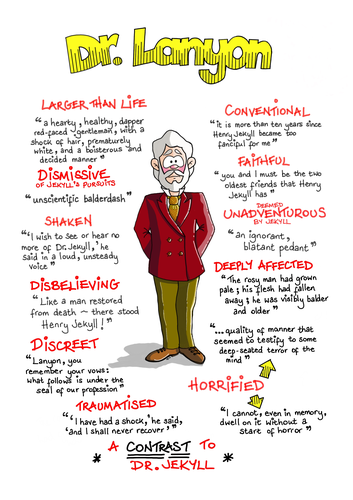 Dr. Lanyon
LARGER THAN LIFE
"a hearty, healthy, dapper
red-faced gentleman, with a
shock of hair, prematurely
white, and a boisterous and
decided manner"
DISMISSIVE
OF JEKYLL'S PURSUITS
"unscientific balderdash"
SHAKEN
"'I wish to see or hear no
more of Dr. Jekyll,' he
said in a loud, unsteady
voice"
DISBELIEVING
"Like a man restored
from death - there stood
Henry Jekyll!"
DISCREET
"Lanyon, you
remember your vows:
what follows is under the
seal of our profession"
TRAUMATISED
"'I have had a shock,' he said,
'and I shall never recover'"
CONVENTIONAL
"it is more than ten years since
Henry Jekyll became too
fanciful for me"
FAITHFUL
"you and I must be the two
oldest friends that Henry
Jekyll has"
DEEMED
UNADVENTUROUS
BY JEKYLL
"an ignorant,
blatant pedant"
DEEPLY AFFECTED
"The rosy man had grown
pale; his flesh had fallen
away; he was visibly balder
and older"
"...quality of manner that
seemed to testify to some
deep-seated terror of the
mind"
HORRIFIED
"I cannot, even in memory,
dwell on it without a
start of horror"
* A CONTRAST TO *
DR. JEKYLL